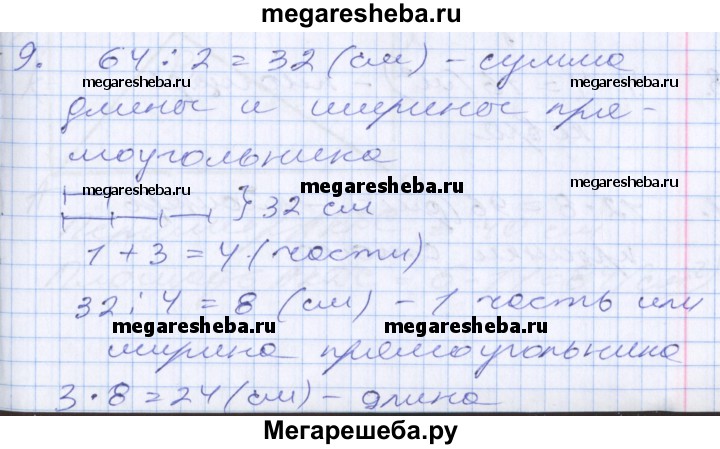 megaresheba.ru
9. 64 : 2 = 32 (см) – сумма
megaresheba.ru megaresheba.ru
длины и ширины пря-
моугольника
megaresheba.ru
} 32 см
1 + 3 = 4 (части)
32 : 4 = 8 (см) – 1 часть или
megaresheba.ru megaresheba.ru
ширина прямоугольника
3 · 8 = 24 (см) – длина
Мегарешеба.ру